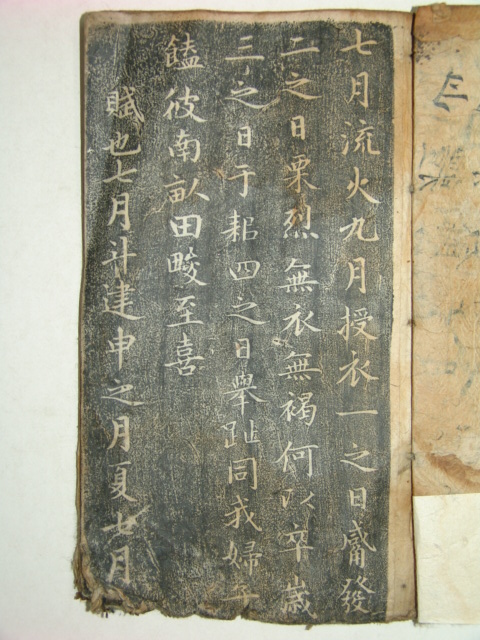 七月流火九月授衣一之日觱發
二之日栗烈無衣無褐何以卒歲
三之日于耜四之日擧趾同我婦子
饁彼南畝田畯至喜
賦也七月斗建申之月夏七月